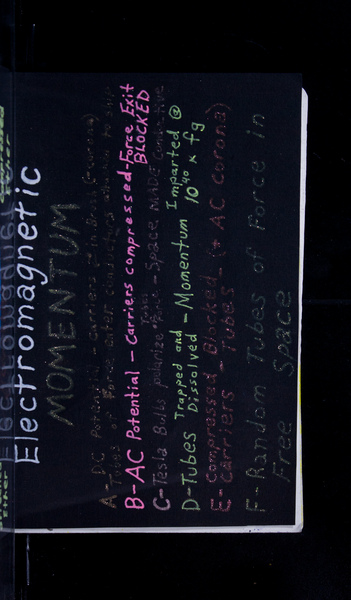 Electromagnetic
MOMENTUM
A-DC Potential - Carriers
Tubes of Force
B-AC Potential - Carriers compressed - Force Exit
BLOCKED
C-Tesla Bulbs polarize - Space MADE
D-Tubes Trapped and Dissolved - Momentum Imparted @ 10⁴⁰ x fg
E-Compressed Blocked
Carriers - Tubes - (+ AC Corona)
F-Random Tubes of Force in
Free Space